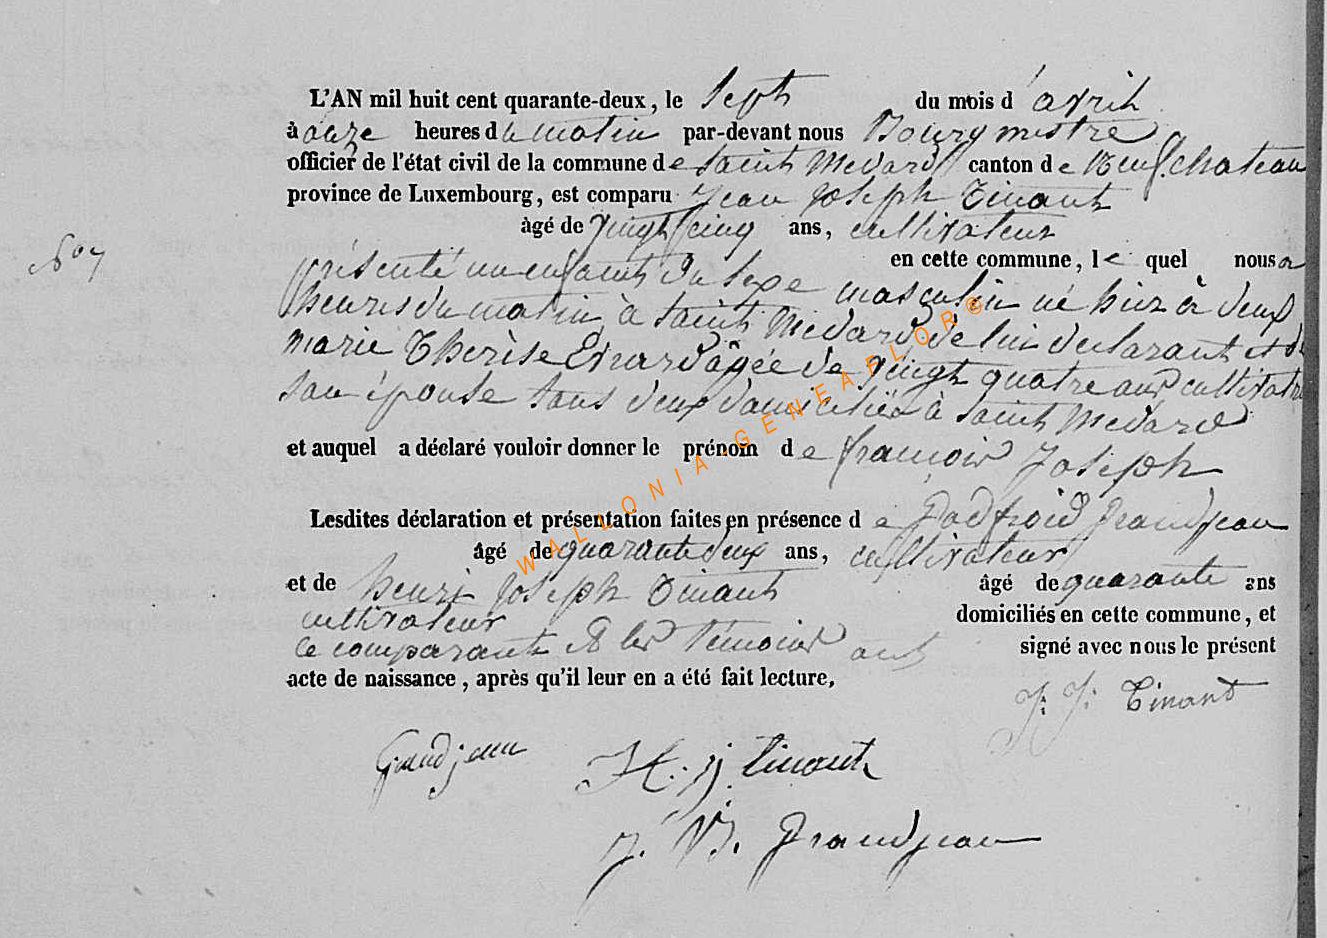 L'AN mil huit cent quarante-deux, le sept du mois d'avril
à onze heures du matin par-devant nous Bourgmestre
officier de l'état civil de la commune de Saint Medard canton de Neufchateau
province de Luxembourg, est comparu Jean Joseph Tinant
âgé de vingt cinq ans, cultivateur
en cette commune, lequel nous a
N° 7
présenté un enfant du sexe masculin né hier à deux
heures du matin à Saint Medard de lui declarant et de
marie Therèse Evrard âgée de vingt quatre ans cultivatrice
son épouse tous deux domiciliés à Saint Medard
et auquel a déclaré vouloir donner le prénom de francois Joseph
Lesdites déclaration et présentation faites en présence de Godfroid grandjean
âgé de quarante deux ans, cultivateur
et de henri Joseph Tinant âgé de quarante ans
cultivateur domiciliés en cette commune, et
le comparant et les témoins ont signé avec nous le présent
acte de naissance, après qu'il leur en a été fait lecture,
J: J: Tinant
Grandjean H. j Tinant
J. B. grandjean
WALLONIA-GENEAFLOR®